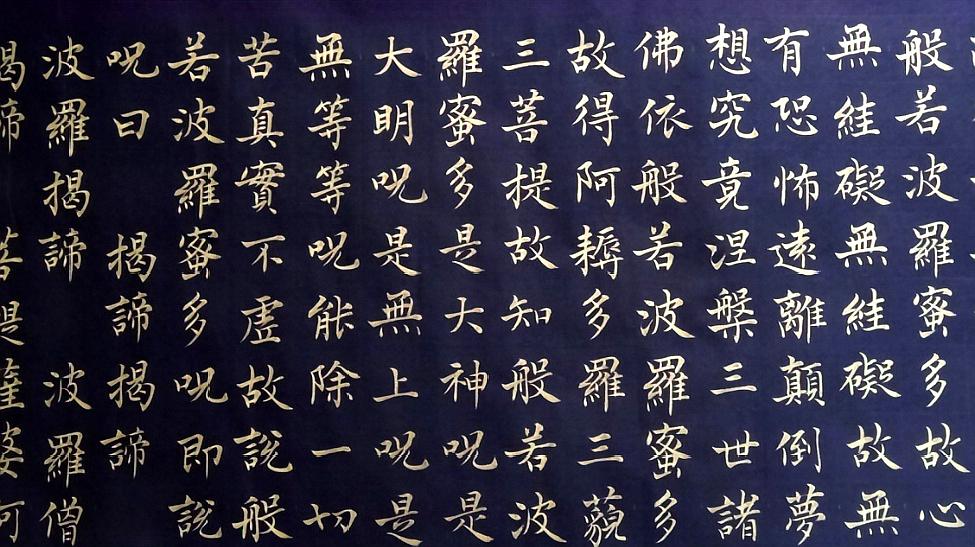 般若波羅蜜多故心
無絓礙無絓礙故無
有恐怖遠離顛倒夢
想究竟涅槃三世諸
佛依般若波羅蜜多
故得阿耨多羅三藐
三菩提故知般若波
羅蜜多是大神呪是
大明呪是無上呪是
無等等呪能除一切
苦真實不虛故說般
若波羅蜜多呪即說
呪曰 揭諦揭諦
波羅揭諦 波羅僧
揭諦 菩提薩婆